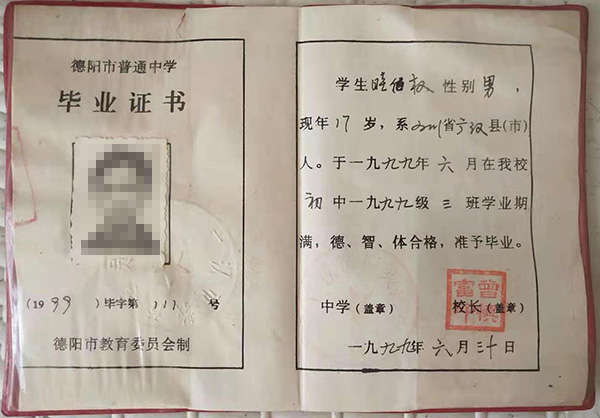 德阳市普通中学
毕业证书
(1999)毕字第111号
德阳市教育委员会制
学生 性别男,
现年17岁,系四川省广汉县(市)
人。于一九九九年六月在我校
初中一九九九级三班学业期
满,德、智、体合格,准予毕业。
中学(盖章) 校长(盖章)
一九九九年六月三十日